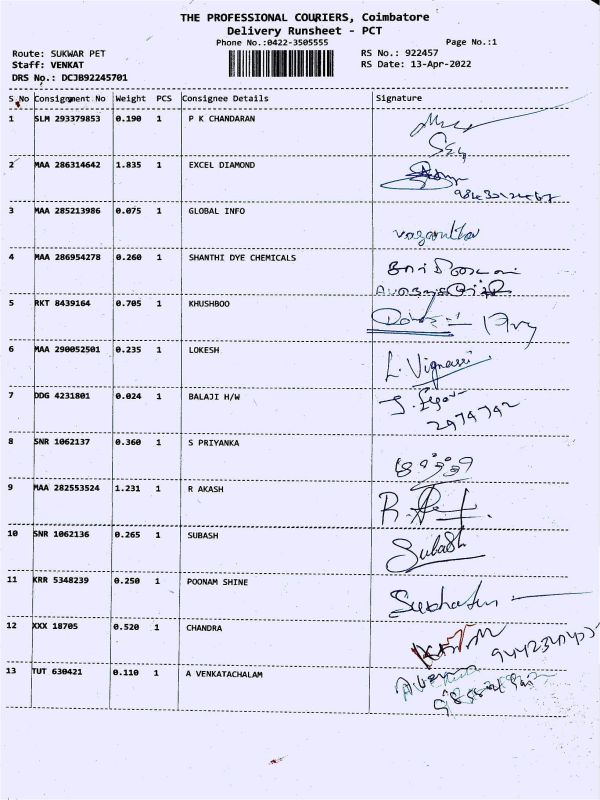 THE PROFESSIONAL COURIERS, Coimbatore
Delivery Runsheet - PCT
Phone No.:0422-3505555 Page No.:1
Route: SUKWAR PET RS No.: 922457
Staff: VENKAT RS Date: 13-Apr-2022
DRS No.: DCJB92245701
S.No Consignment No Weight PCS Consignee Details Signature
1 SLM 293379853 0.190 1 P K CHANDARAN
2 MAA 286314642 1.835 1 EXCEL DIAMOND
3 MAA 285213986 0.075 1 GLOBAL INFO
4 MAA 286954278 0.260 1 SHANTHI DYE CHEMICALS
5 RKT 8439164 0.705 1 KHUSHBOO
6 MAA 290052501 0.235 1 LOKESH
7 DDG 4231801 0.024 1 BALAJI H/W
2979792
8 SNR 1062137 0.360 1 S PRIYANKA
9 MAA 282553524 1.231 1 R AKASH
10 SNR 1062136 0.265 1 SUBASH Subash
11 KRR 5348239 0.250 1 POONAM SHINE
12 XXX 18705 0.520 1 CHANDRA
13 TUT 630421 0.110 1 A VENKATACHALAM